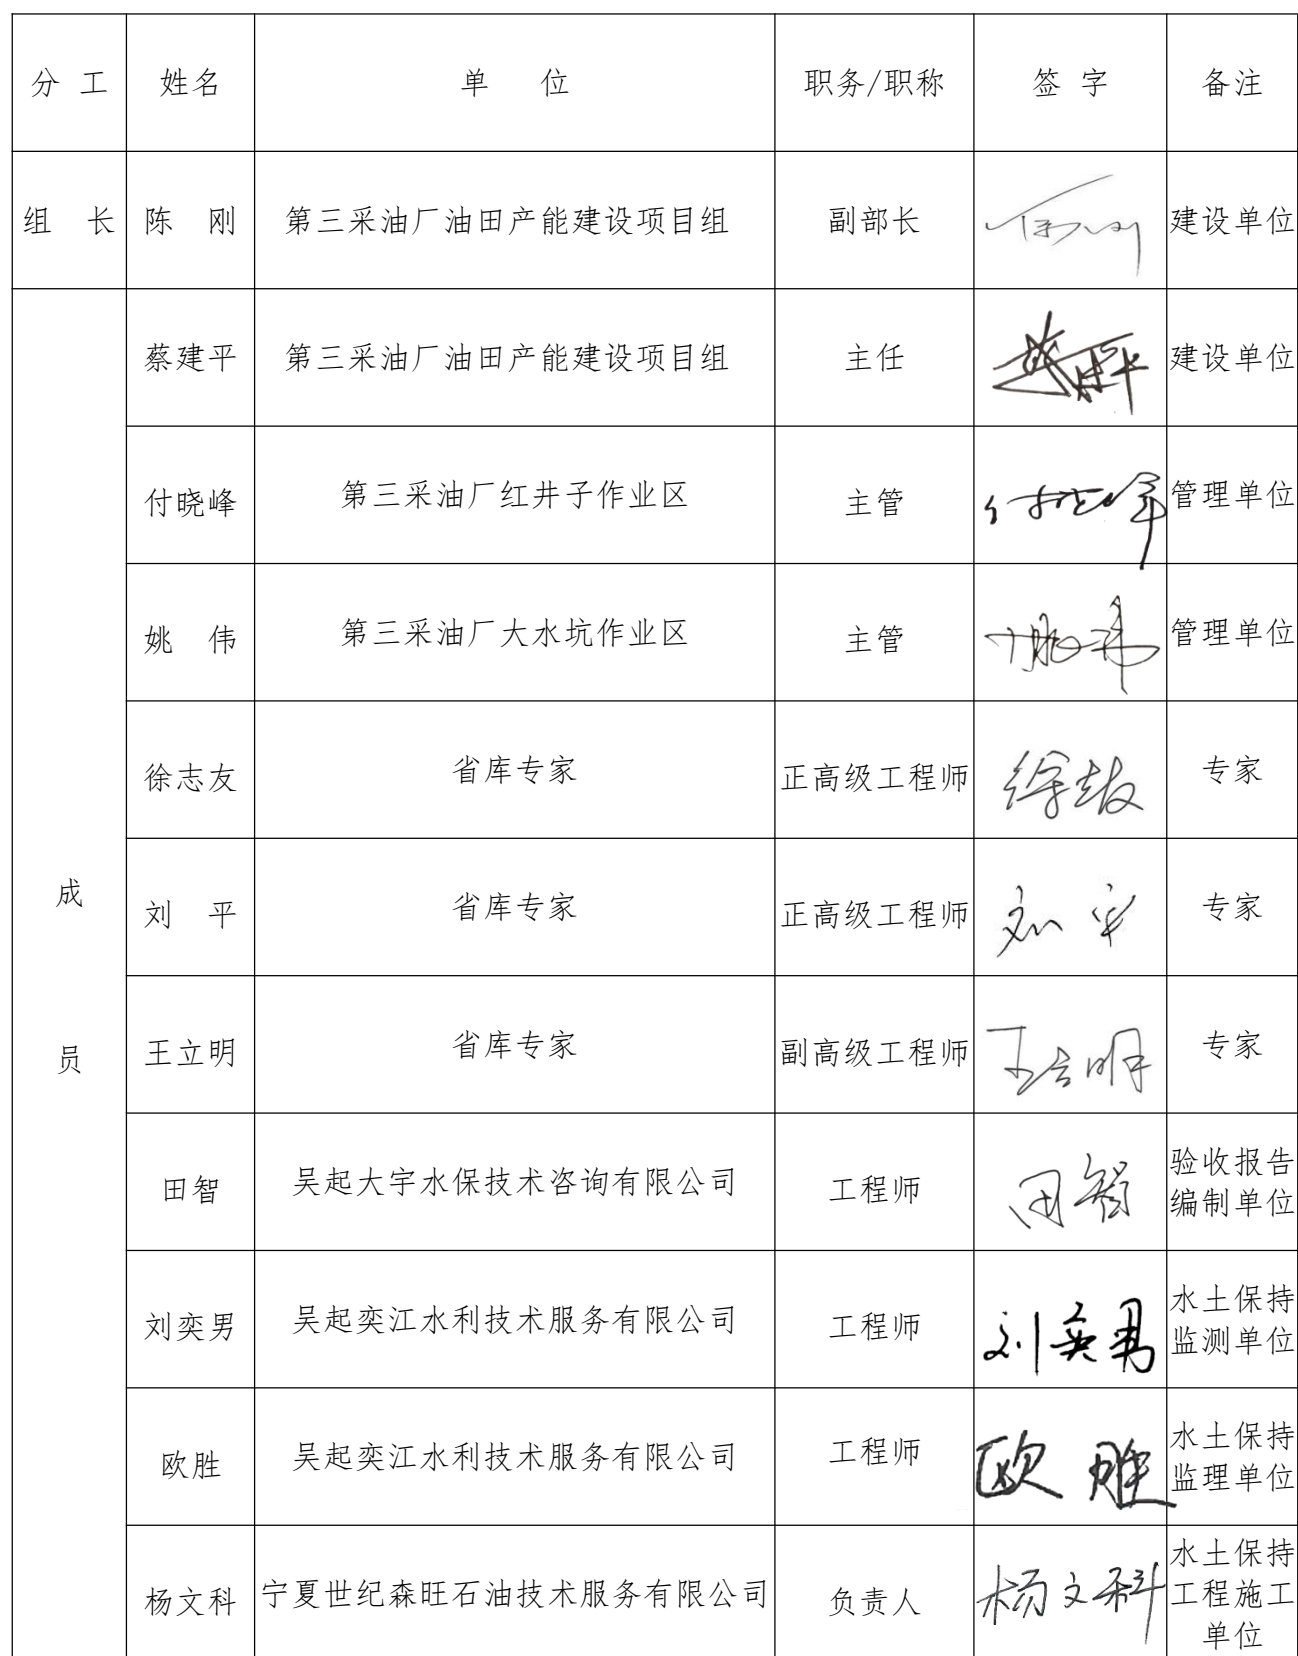 分 工 姓名 单 位 职务/职称 签 字 备注
组 长 陈 刚 第三采油厂油田产能建设项目组 副部长 建设单位
成
员
蔡建平 第三采油厂油田产能建设项目组 主任 建设单位
付晓峰 第三采油厂红井子作业区 主管 付晓峰 管理单位
姚 伟 第三采油厂大水坑作业区 主管 姚伟 管理单位
徐志友 省库专家 正高级工程师 徐志友 专家
刘 平 省库专家 正高级工程师 刘平 专家
王立明 省库专家 副高级工程师 王立明 专家
田智 吴起大宇水保技术咨询有限公司 工程师 田智 验收报告
编制单位
刘奕男 吴起奕江水利技术服务有限公司 工程师 刘奕男 水土保持
监测单位
欧胜 吴起奕江水利技术服务有限公司 工程师 欧胜 水土保持
监理单位
杨文科 宁夏世纪森旺石油技术服务有限公司 负责人 杨文科 水土保持
工程施工
单位